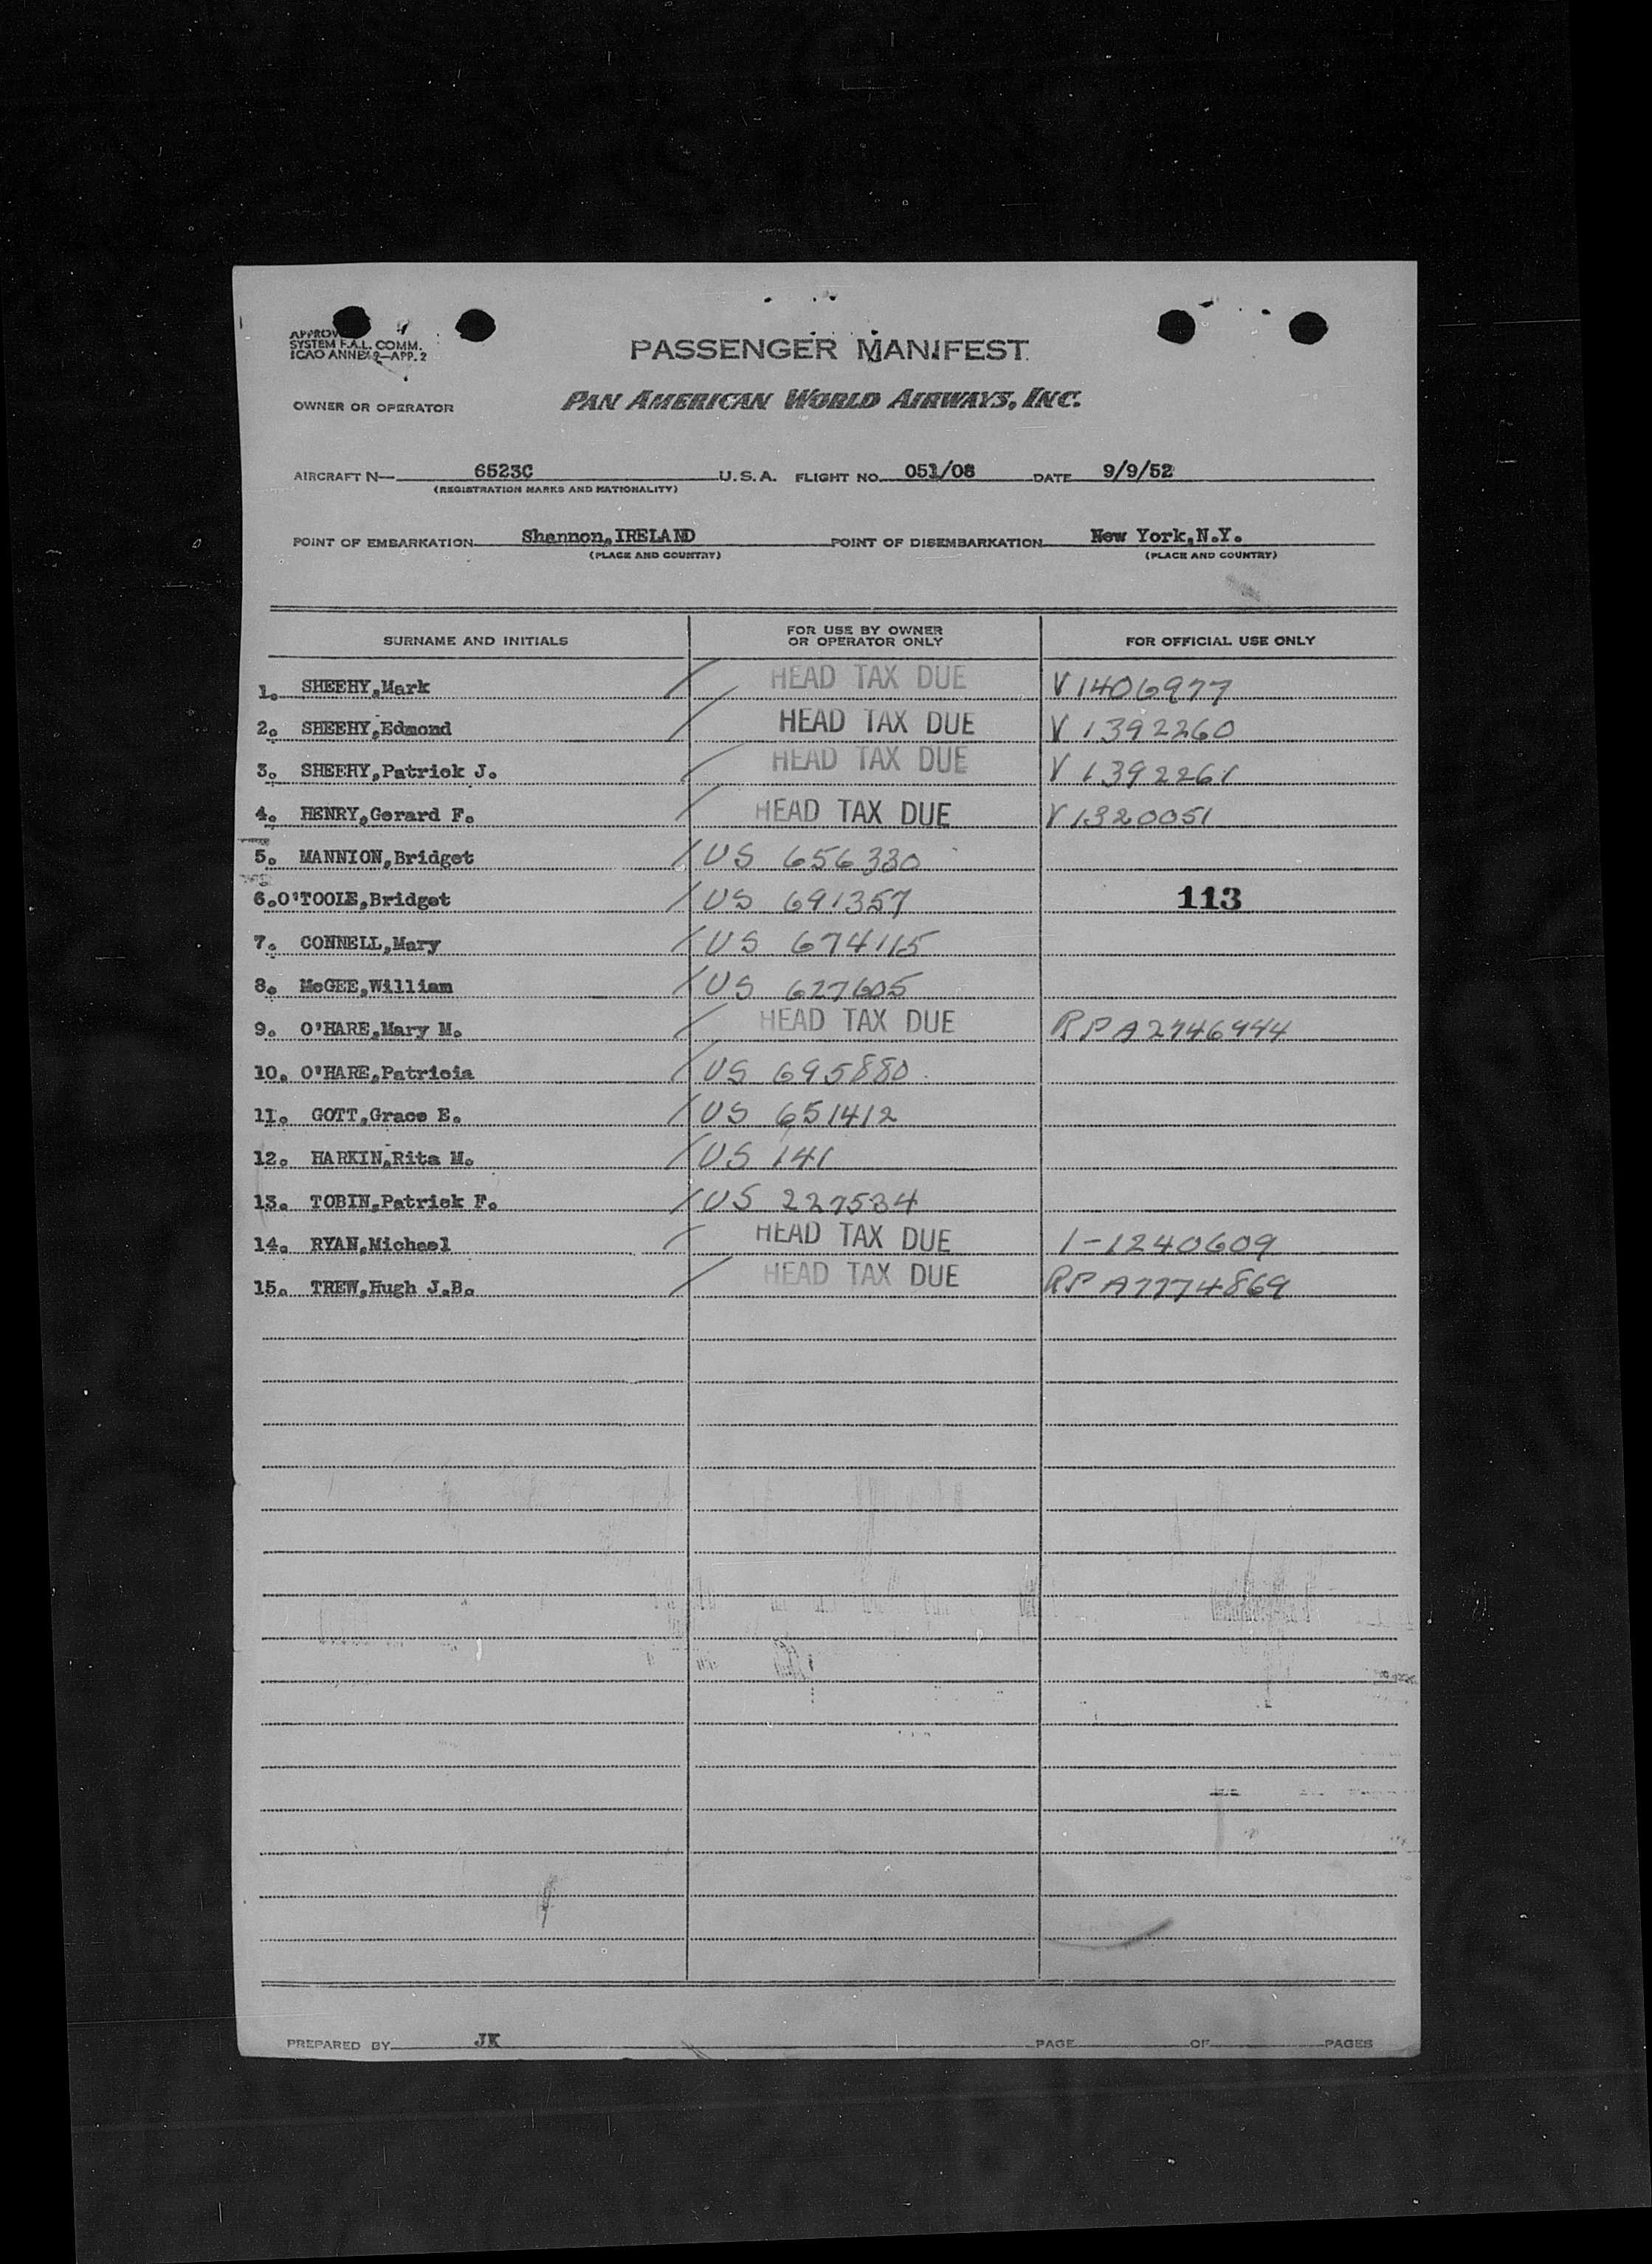 APPROV
SYSTEM F.A.L. COMM.
ICAO ANNEX 9—APP. 2
PASSENGER MANIFEST
OWNER OR OPERATOR PAN AMERICAN WORLD AIRWAYS, INC.
AIRCRAFT N— 6523C U.S.A. FLIGHT NO. 051/08 DATE 9/9/52
(REGISTRATION MARKS AND NATIONALITY)
POINT OF EMBARKATION Shannon,IRELAND POINT OF DISEMBARKATION New York,N.Y.
(PLACE AND COUNTRY) (PLACE AND COUNTRY)
SURNAME AND INITIALS FOR USE BY OWNER OR OPERATOR ONLY FOR OFFICIAL USE ONLY
1. SHEEHY,Mark / HEAD TAX DUE V 1406977
2. SHEEHY,Edmond / HEAD TAX DUE V 1392260
3. SHEEHY,Patrick J. / HEAD TAX DUE V 1392261
4. HENRY,Gerard F. / HEAD TAX DUE V 1320051
5. MANNION,Bridget / US 656330
6.O'TOOLE,Bridget / US 691357 113
7. CONNELL,Mary / US 674115
8. McGEE,William / US 627605
9. O'HARE,Mary M. / HEAD TAX DUE RP A2746944
10. O'HARE,Patricia / US 695880
11. GOTT,Grace E. / US 651412
12. HARKIN,Rita M. / US 141
13. TOBIN,Patrick F. / US 227534
14. RYAN,Michael / HEAD TAX DUE 1-1240609
15. TREW,Hugh J.B. / HEAD TAX DUE RP A7774869
PREPARED BY JK PAGE OF PAGES